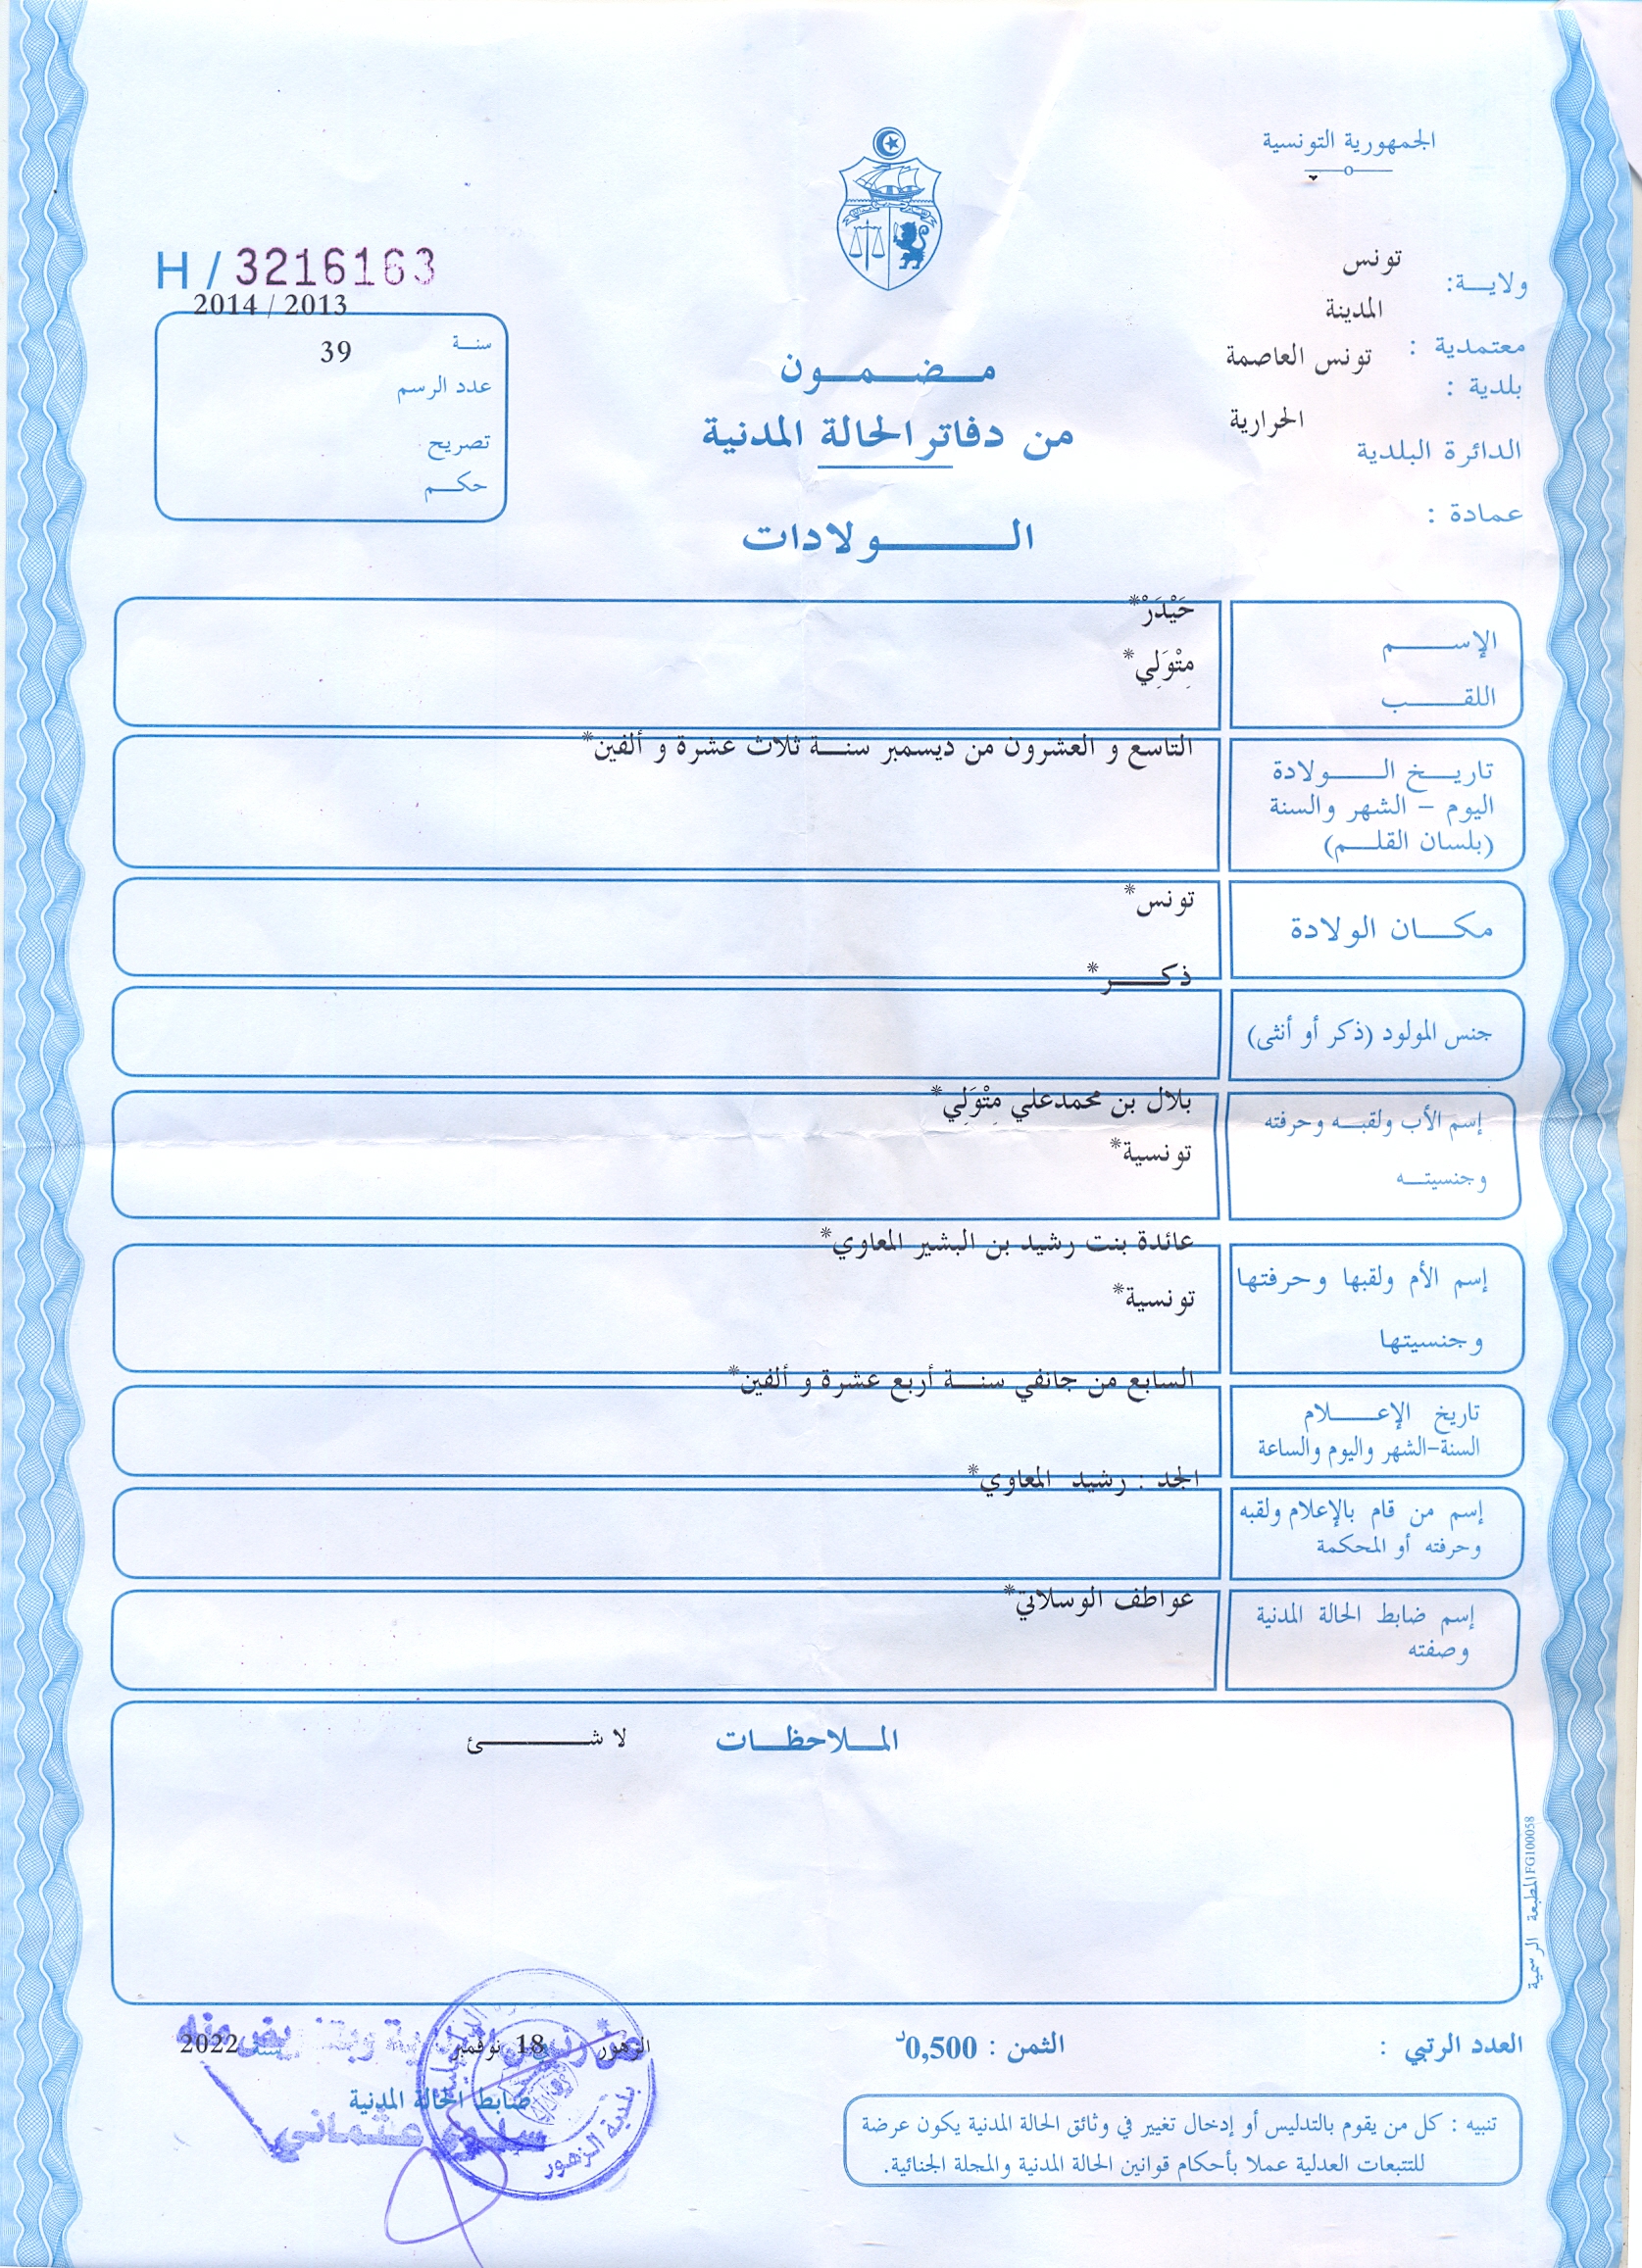 الجمهورية التونسية
ولايـــة: تونس
معتمدية : المدينة
بلدية : تونس العاصمة
الدائرة البلدية الحرارية
عمادة :
H / 3216163
2014 / 2013
سنـــة
39
عدد الرسم
تصريح
حكـــم
مـــضـــمـــون
من دفاتر الحالة المدنية
الـــــــولادات
الإســـــم
حَيْدَرْ*
اللقـــــب
مِتْوَلِي*
تاريـــخ الـــــولادة
اليوم – الشهر والسنة
(بلسان القلـــم)
التاسع و العشرون من ديسمبر سنـــة ثلاث عشرة و ألفين*
مكـــان الولادة
تونس*
جنس المولود (ذكر أو أنثى)
ذكـــــر*
إسم الأب ولقبـــه وحرفته
وجنسيتـــه
بلال بن محمدعلي مِتْوَلِي*
تونسية*
إسم الأم ولقبها وحرفتها
وجنسيتها
عائدة بنت رشيد بن البشير المعاوي*
تونسية*
تاريخ الإعـــــلام
السنة-الشهر واليوم والساعة
السابع من جانفي سنـــة أربع عشرة و ألفين*
إسم من قام بالإعلام ولقبه
وحرفته أو المحكمة
الجد : رشيد المعاوي*
إسم ضابط الحالة المدنية
وصفته
عواطف الوسلاتي*
المـــلاحظـــات
لا شـــــــئ
المطبعة الرسمية FG100058
العدد الرتبي :
الثمن : 0,500د
الزهور 18 نوفمبر 2022
ضابط الحالة المدنية
عثماني
بلدية الزهور
تنبيه : كل من يقوم بالتدليس أو إدخال تغيير في وثائق الحالة المدنية يكون عرضة
للتتبعات العدلية عملا بأحكام قوانين الحالة المدنية والمجلة الجنائية.